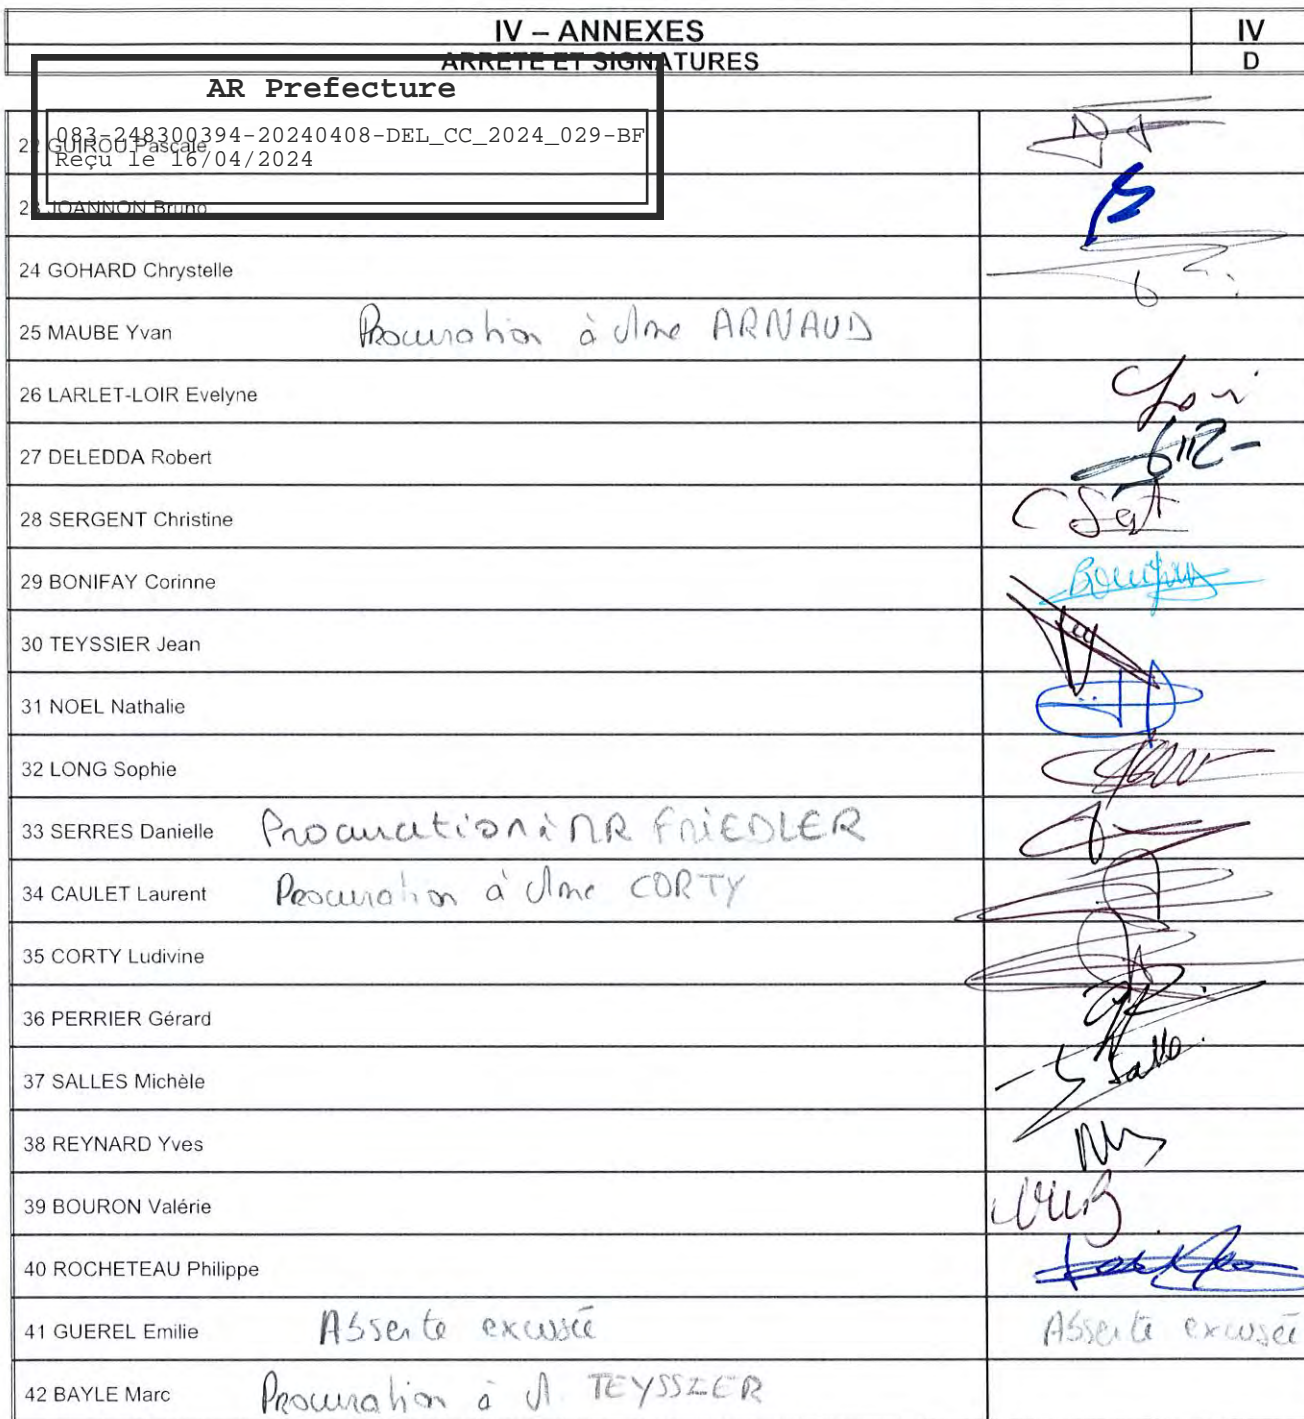 IV – ANNEXES IV
ARRETE ET SIGNATURES D
AR Prefecture
083-248300394-20240408-DEL_CC_2024_029-BF
Reçu le 16/04/2024
22 GUIROU Pascale
23 JOANNON Bruno
24 GOHARD Chrystelle
25 MAUBE Yvan Procuration à Mme ARNAUD
26 LARLET-LOIR Evelyne
27 DELEDDA Robert
28 SERGENT Christine
29 BONIFAY Corinne
30 TEYSSIER Jean
31 NOEL Nathalie
32 LONG Sophie
33 SERRES Danielle Procuration à MR FRIEDLER
34 CAULET Laurent Procuration à Mme CORTY
35 CORTY Ludivine
36 PERRIER Gérard
37 SALLES Michèle
38 REYNARD Yves
39 BOURON Valérie
40 ROCHETEAU Philippe
41 GUEREL Emilie Absente excusée Absente excusée
42 BAYLE Marc Procuration à M. TEYSSIER